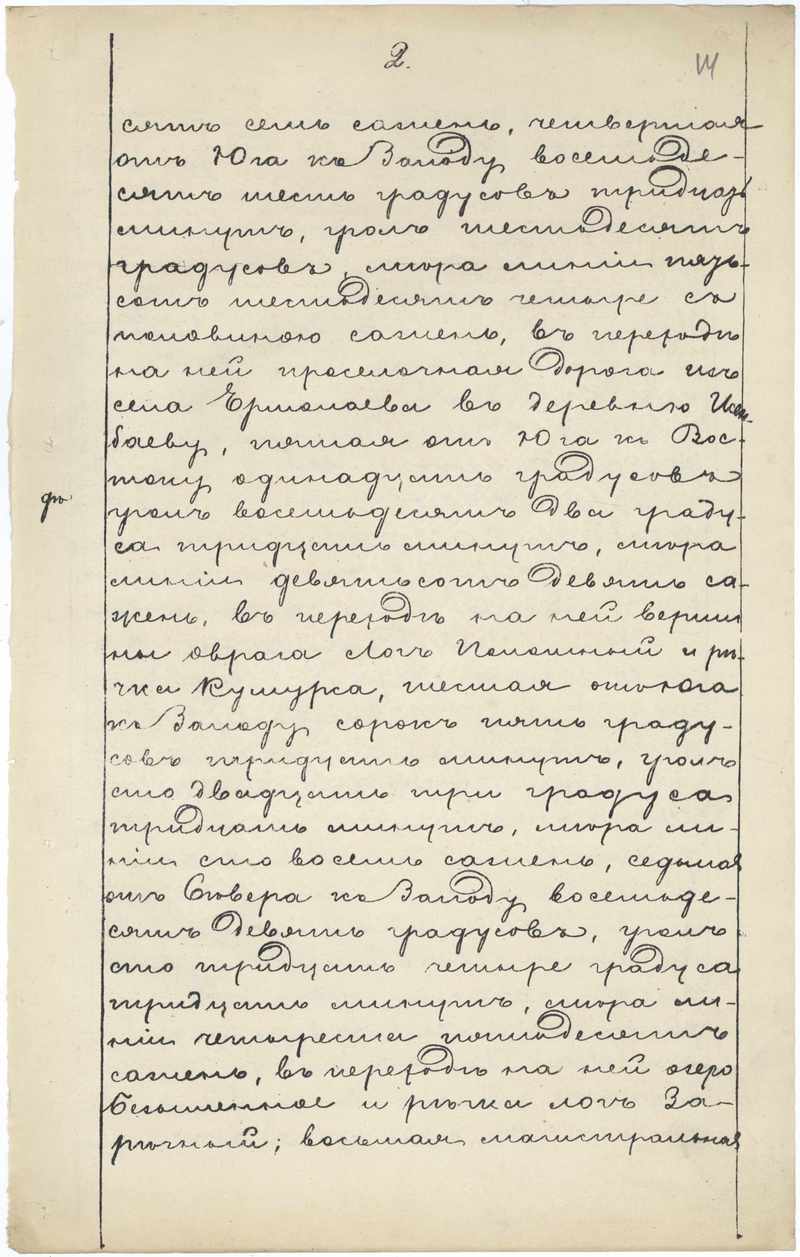 2.
сятъ семь сажень, четвертая
отъ Юга къ Западу восемьде-
сятъ шесть градусовъ тридцать
минутъ, уголъ шестьдесятъ
градусовъ, мѣра линіи пять-
сотъ шестьдесятъ четыре съ
половиною сажень, въ переходѣ
на ней проселочная дорога изъ
села Ермолаева въ деревню Исем-
баеву, пятая отъ Юга къ Вос-
току одинадцать градусовъ
уголъ восемьдесятъ два граду-
са тридцать минутъ, мѣра
линіи девятьсотъ девять са-
жень, въ переходѣ на ней верши
ны оврага Логъ
и рѣ-
чка Кумурка, шестая отъ Юга
къ Западу сорокъ пять граду-
совъ тридцать минутъ, уголъ
сто двадцать три градуса
тридцать минутъ, мѣра ли-
ніи сто восемь сажень, седьмая
отъ Сѣвера къ Западу восемьде-
сятъ девять градусовъ, уголъ
сто тридцать четыре градуса
тридцать минутъ, мѣра ли-
ніи четыреста пятьдесятъ
сажень, въ переходѣ на ней озеро
и рѣчка логъ За-
рѣчный; восьмая магистральная